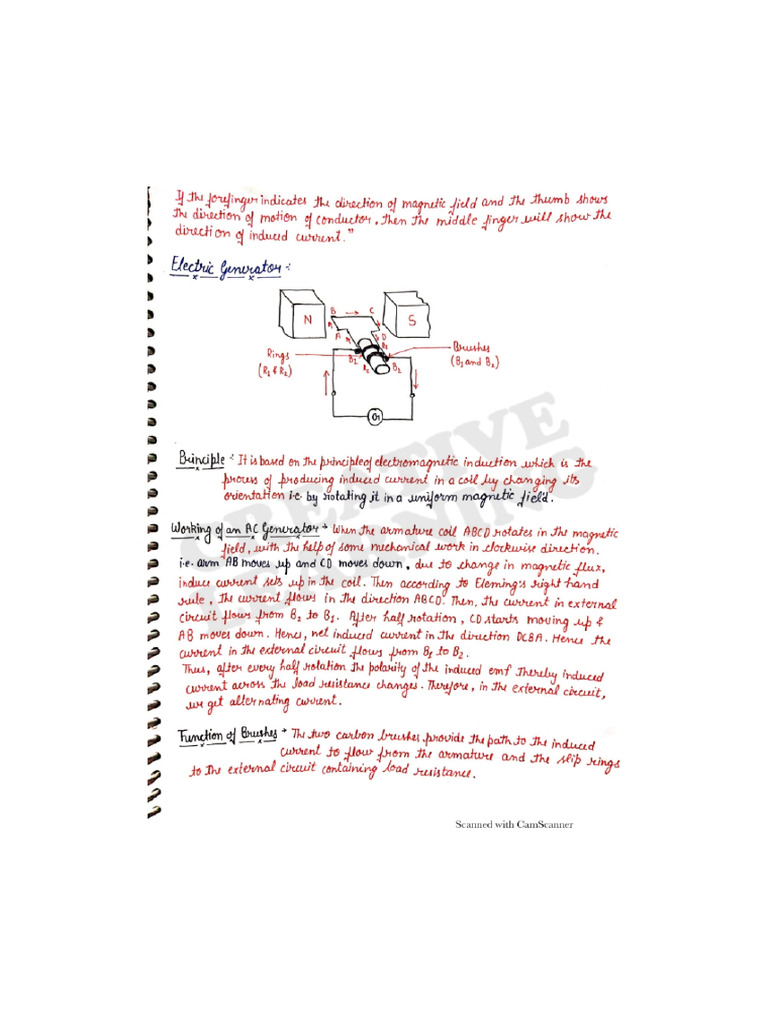 If the forefinger indicates the direction of magnetic field and the thumb shows
the direction of motion of conductor, then the middle finger will show the
direction of induced current."
Electric Generator:
N
B
C
S
A
D
R1
R2
Rings
(R1 & R2)
B1
B2
Brushes
(B1 and B2)
G
Principle: It is based on the principle of electromagnetic induction which is the
process of producing induced current in a coil by changing its
orientation i.e. by rotating it in a uniform magnetic field.
Working of an AC Generator → When the armature coil ABCD rotates in the magnetic
field, with the help of some mechanical work in clockwise direction.
i.e. arm AB moves up and CD moves down, due to change in magnetic flux,
induce current sets up in the coil. Then according to Fleming's right hand
rule, the current flows in the direction ABCD. Then, the current in external
circuit flows from B2 to B1. After half rotation, CD starts moving up &
AB moves down. Hence, net induced current in the direction DCBA. Hence the
current in the external circuit flows from B1 to B2.
Thus, after every half rotation the polarity of the induced emf thereby induced
current across the load resistance changes. Therefore, in the external circuit,
we get alternating current.
Function of Brushes → The two carbon brushes provide the path to the induced
current to flow from the armature and the slip rings
to the external circuit containing load resistance.
CREATIVE
LEARNING
Scanned with CamScanner